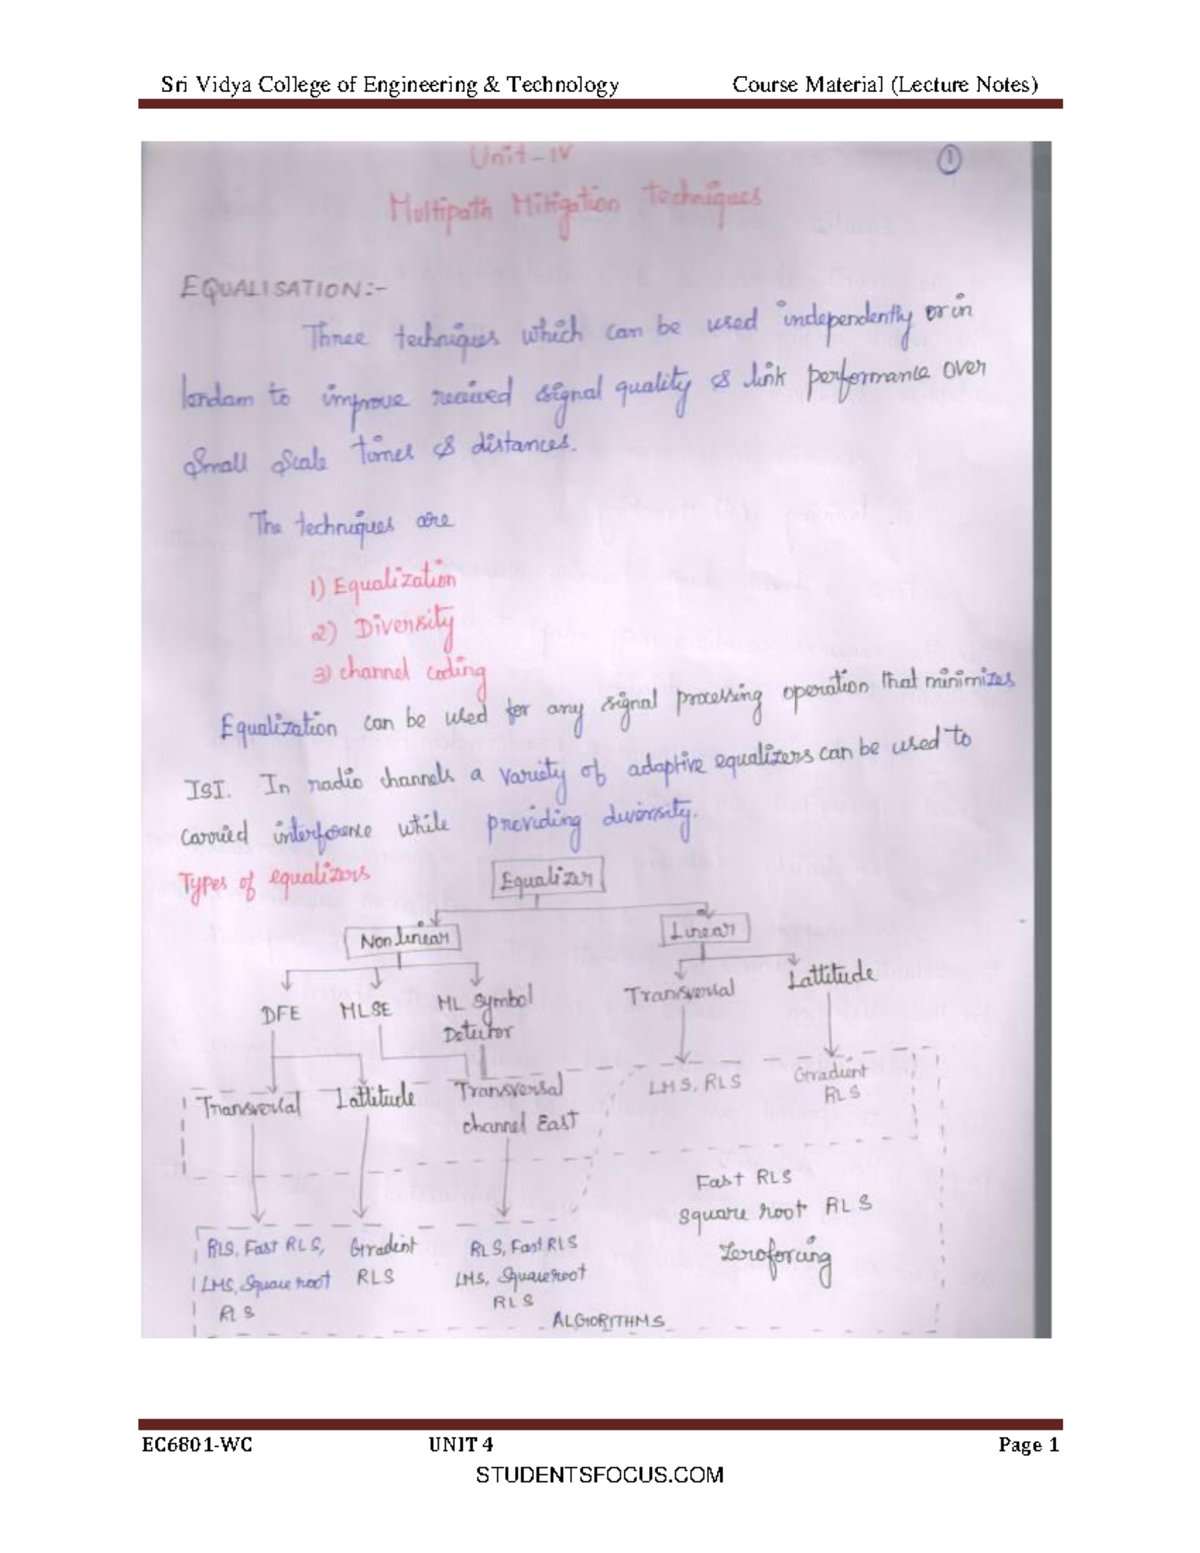 Sri Vidya College of Engineering & Technology Course Material (Lecture Notes)
Unit-IV
1
Multipath Mitigation Techniques
EQUALISATION:-
Three techniques which can be used independently or in
landam to improve received signal quality & link performance over
Small Scale times & distances.
The techniques are
1) Equalization
2) Diversity
3) channel coding
Equalization can be used for any signal processing operation that minimizes
ISI. In radio channels a variety of adaptive equalizers can be used to
carried interference while providing diversity.
Types of equalizers
Equalizer
Nonlinear Linear
DFE MLSE ML Symbol Detector Transversal Lattitude
Transversal Lattitude Transversal LMS, RLS Gradient
channel East RLS
Fast RLS
Square root RLS
Zeroforcing
RLS, Fast RLS, Gradient RLS, Fast RLS
LMS, Square root RLS LMS, Squareroot
RLS RLS
ALGORITHMS
EC6801-WC UNIT 4 Page 1
STUDENTSFOCUS.COM